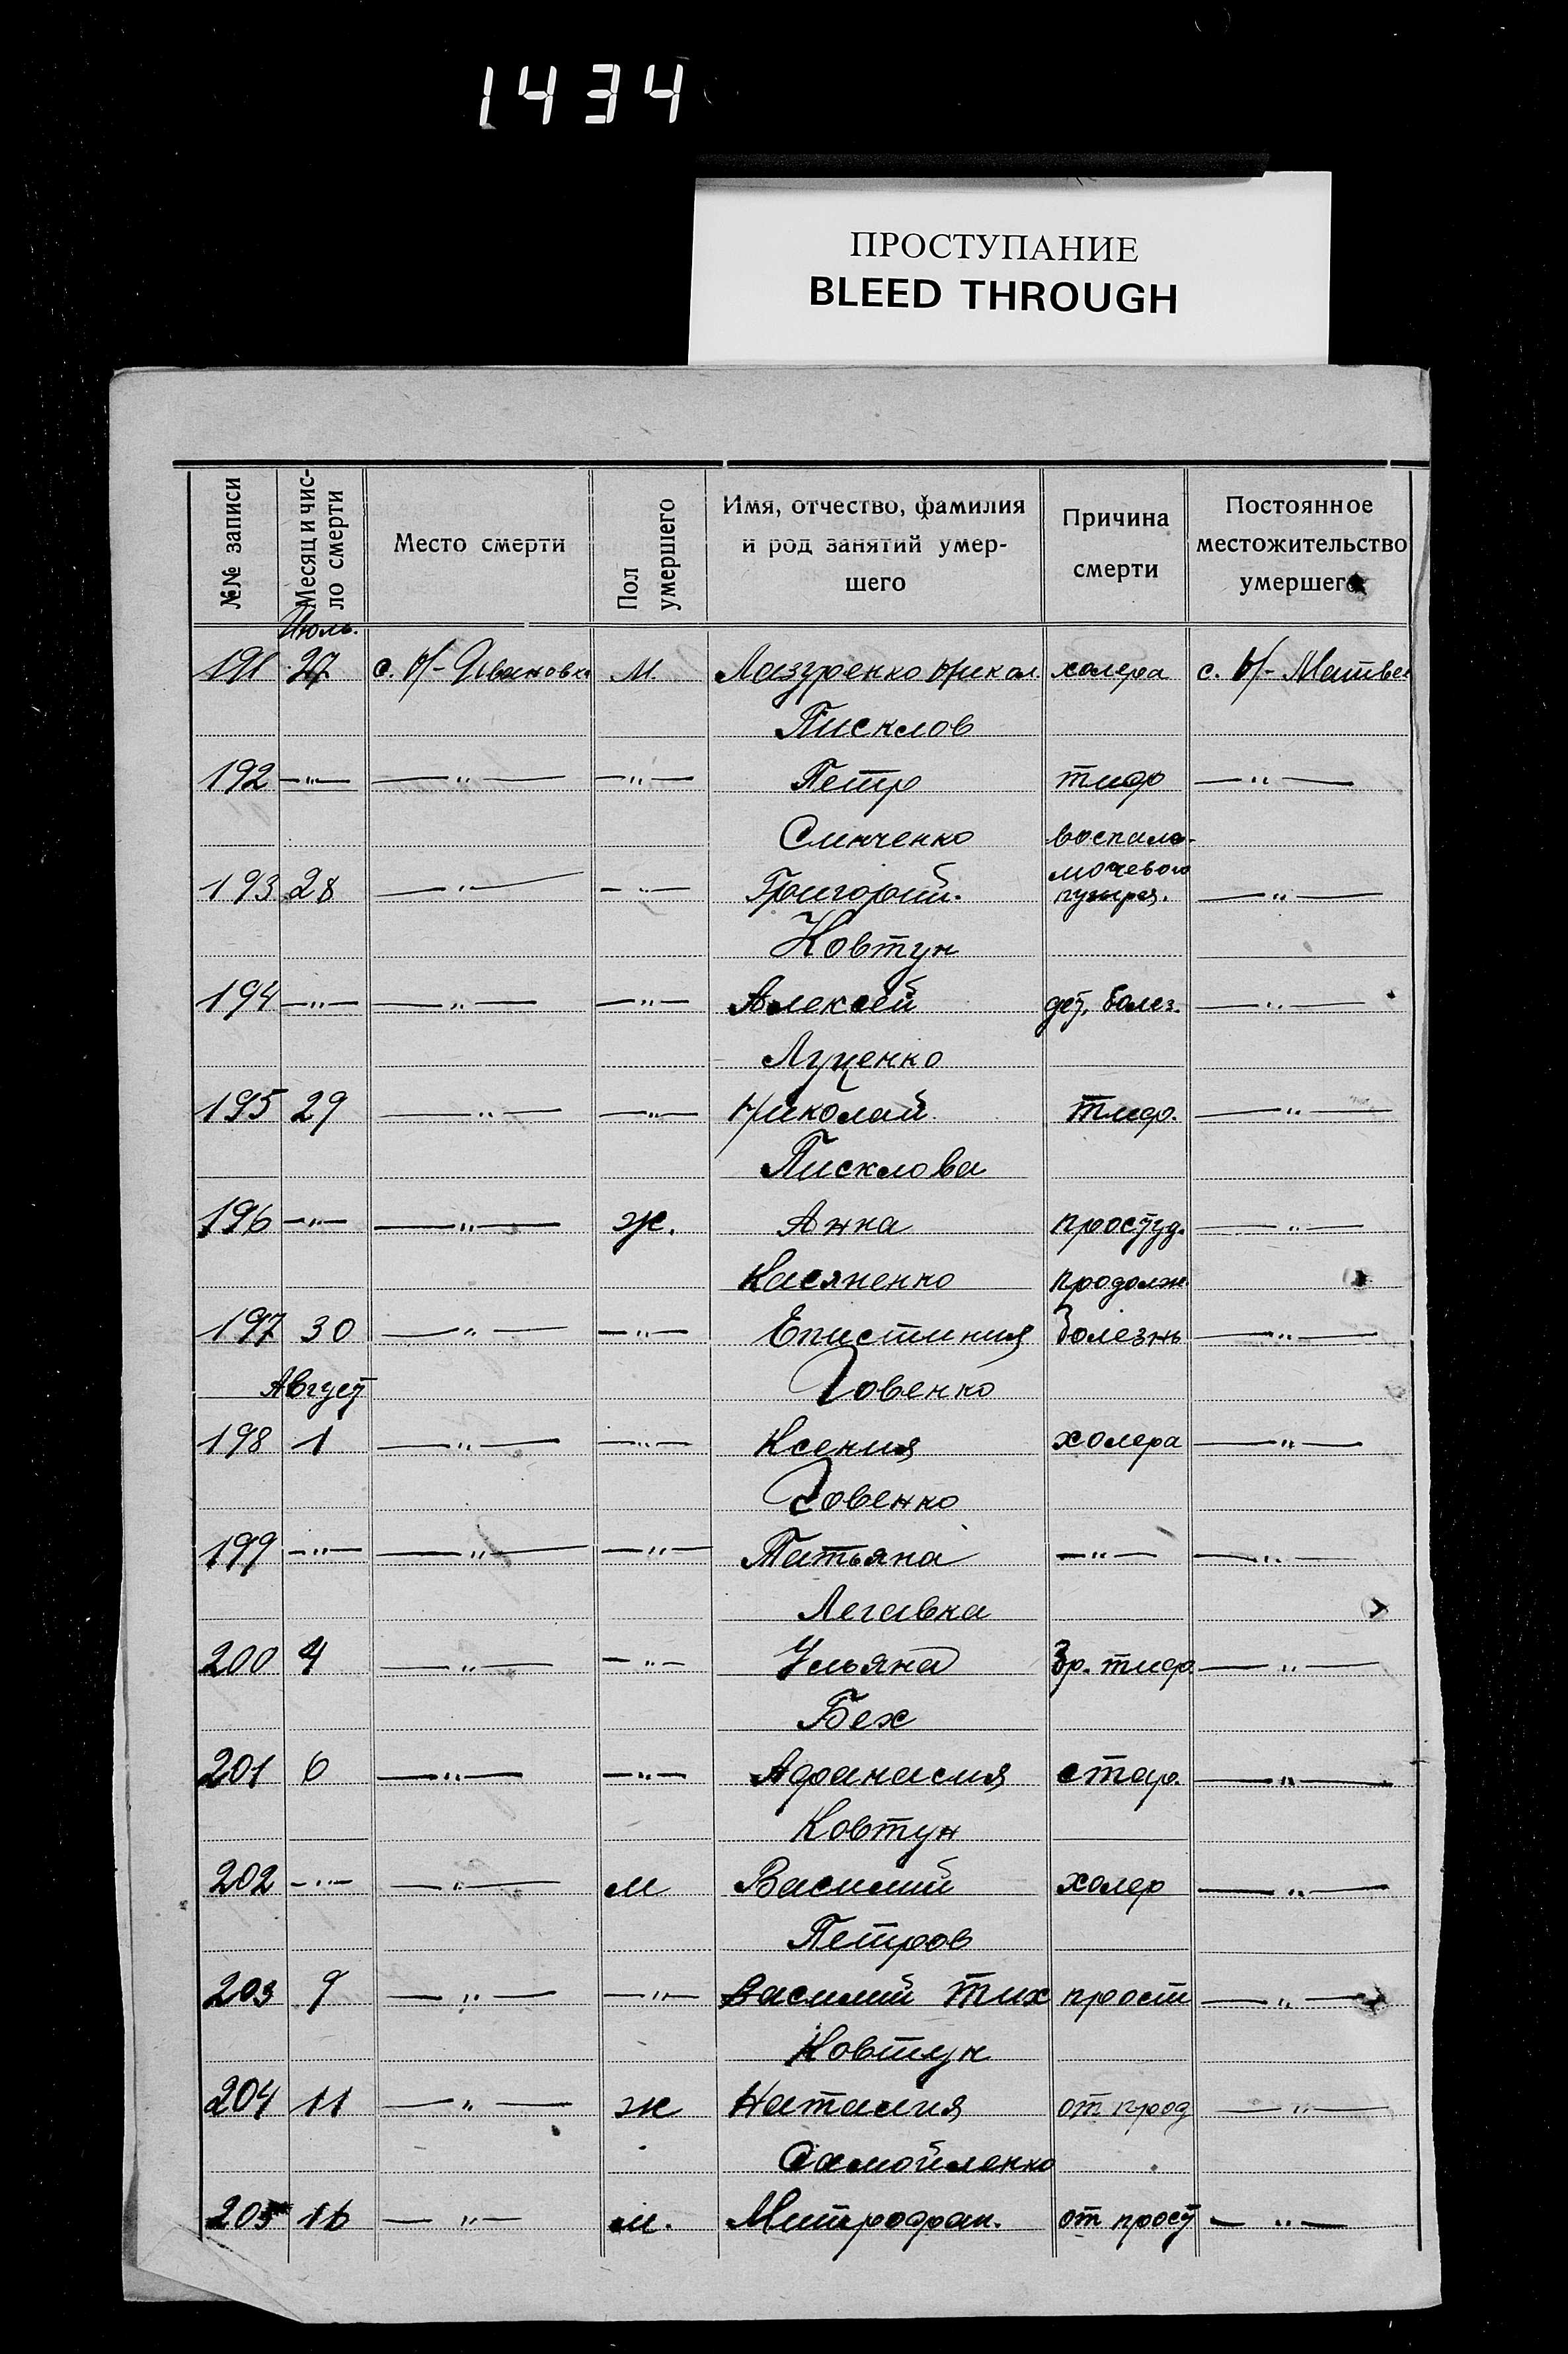 1434
ПРОСТУПАНИЕ
BLEED THROUGH
№№ записи
Месяц и чис-
ло смерти
Место смерти
Пол
умершего
Имя, отчество, фамилия
и род занятий умер-
шего
Причина
смерти
Постоянное
местожительство
умершего
Июль.
191 27 с. Н-Ивановка м. Лазуренко Никол. холера с. Н-Матвее
Писклов
192 —"— —"— —"— Петр тиф —"—
Синченко воспале-
мочевого
193 28 —"— —"— Григорий. пузыря. —"—
Ковтун
194 —"— —"— —"— Алексей дет. болез. —"—
Луценко
195 29 —"— —"— Николай тиф. —"—
Писклова
196 —"— —"— ж. Анна простуд. —"—
Касяненко продолж.
197 30 —"— —"— Епистиния болезнь —"—
Август Човенко
198 1 —"— —"— Ксения холера —"—
Човенко
199 —"— —"— —"— Татьяна —"— —"—
Легавка
200 4 —"— —"— Ульяна бр. тиф. —"—
Бех
201 6 —"— —"— Афанасия стар. —"—
Ковтун
202 —"— —"— м Василий холер —"—
Петров
203 9 —"— —"— Василий Тих прост —"—
Ковтун
204 11 —"— ж Наталия от прод —"—
Самойленко
205 16 —"— м. Митрофан. от прост —"—